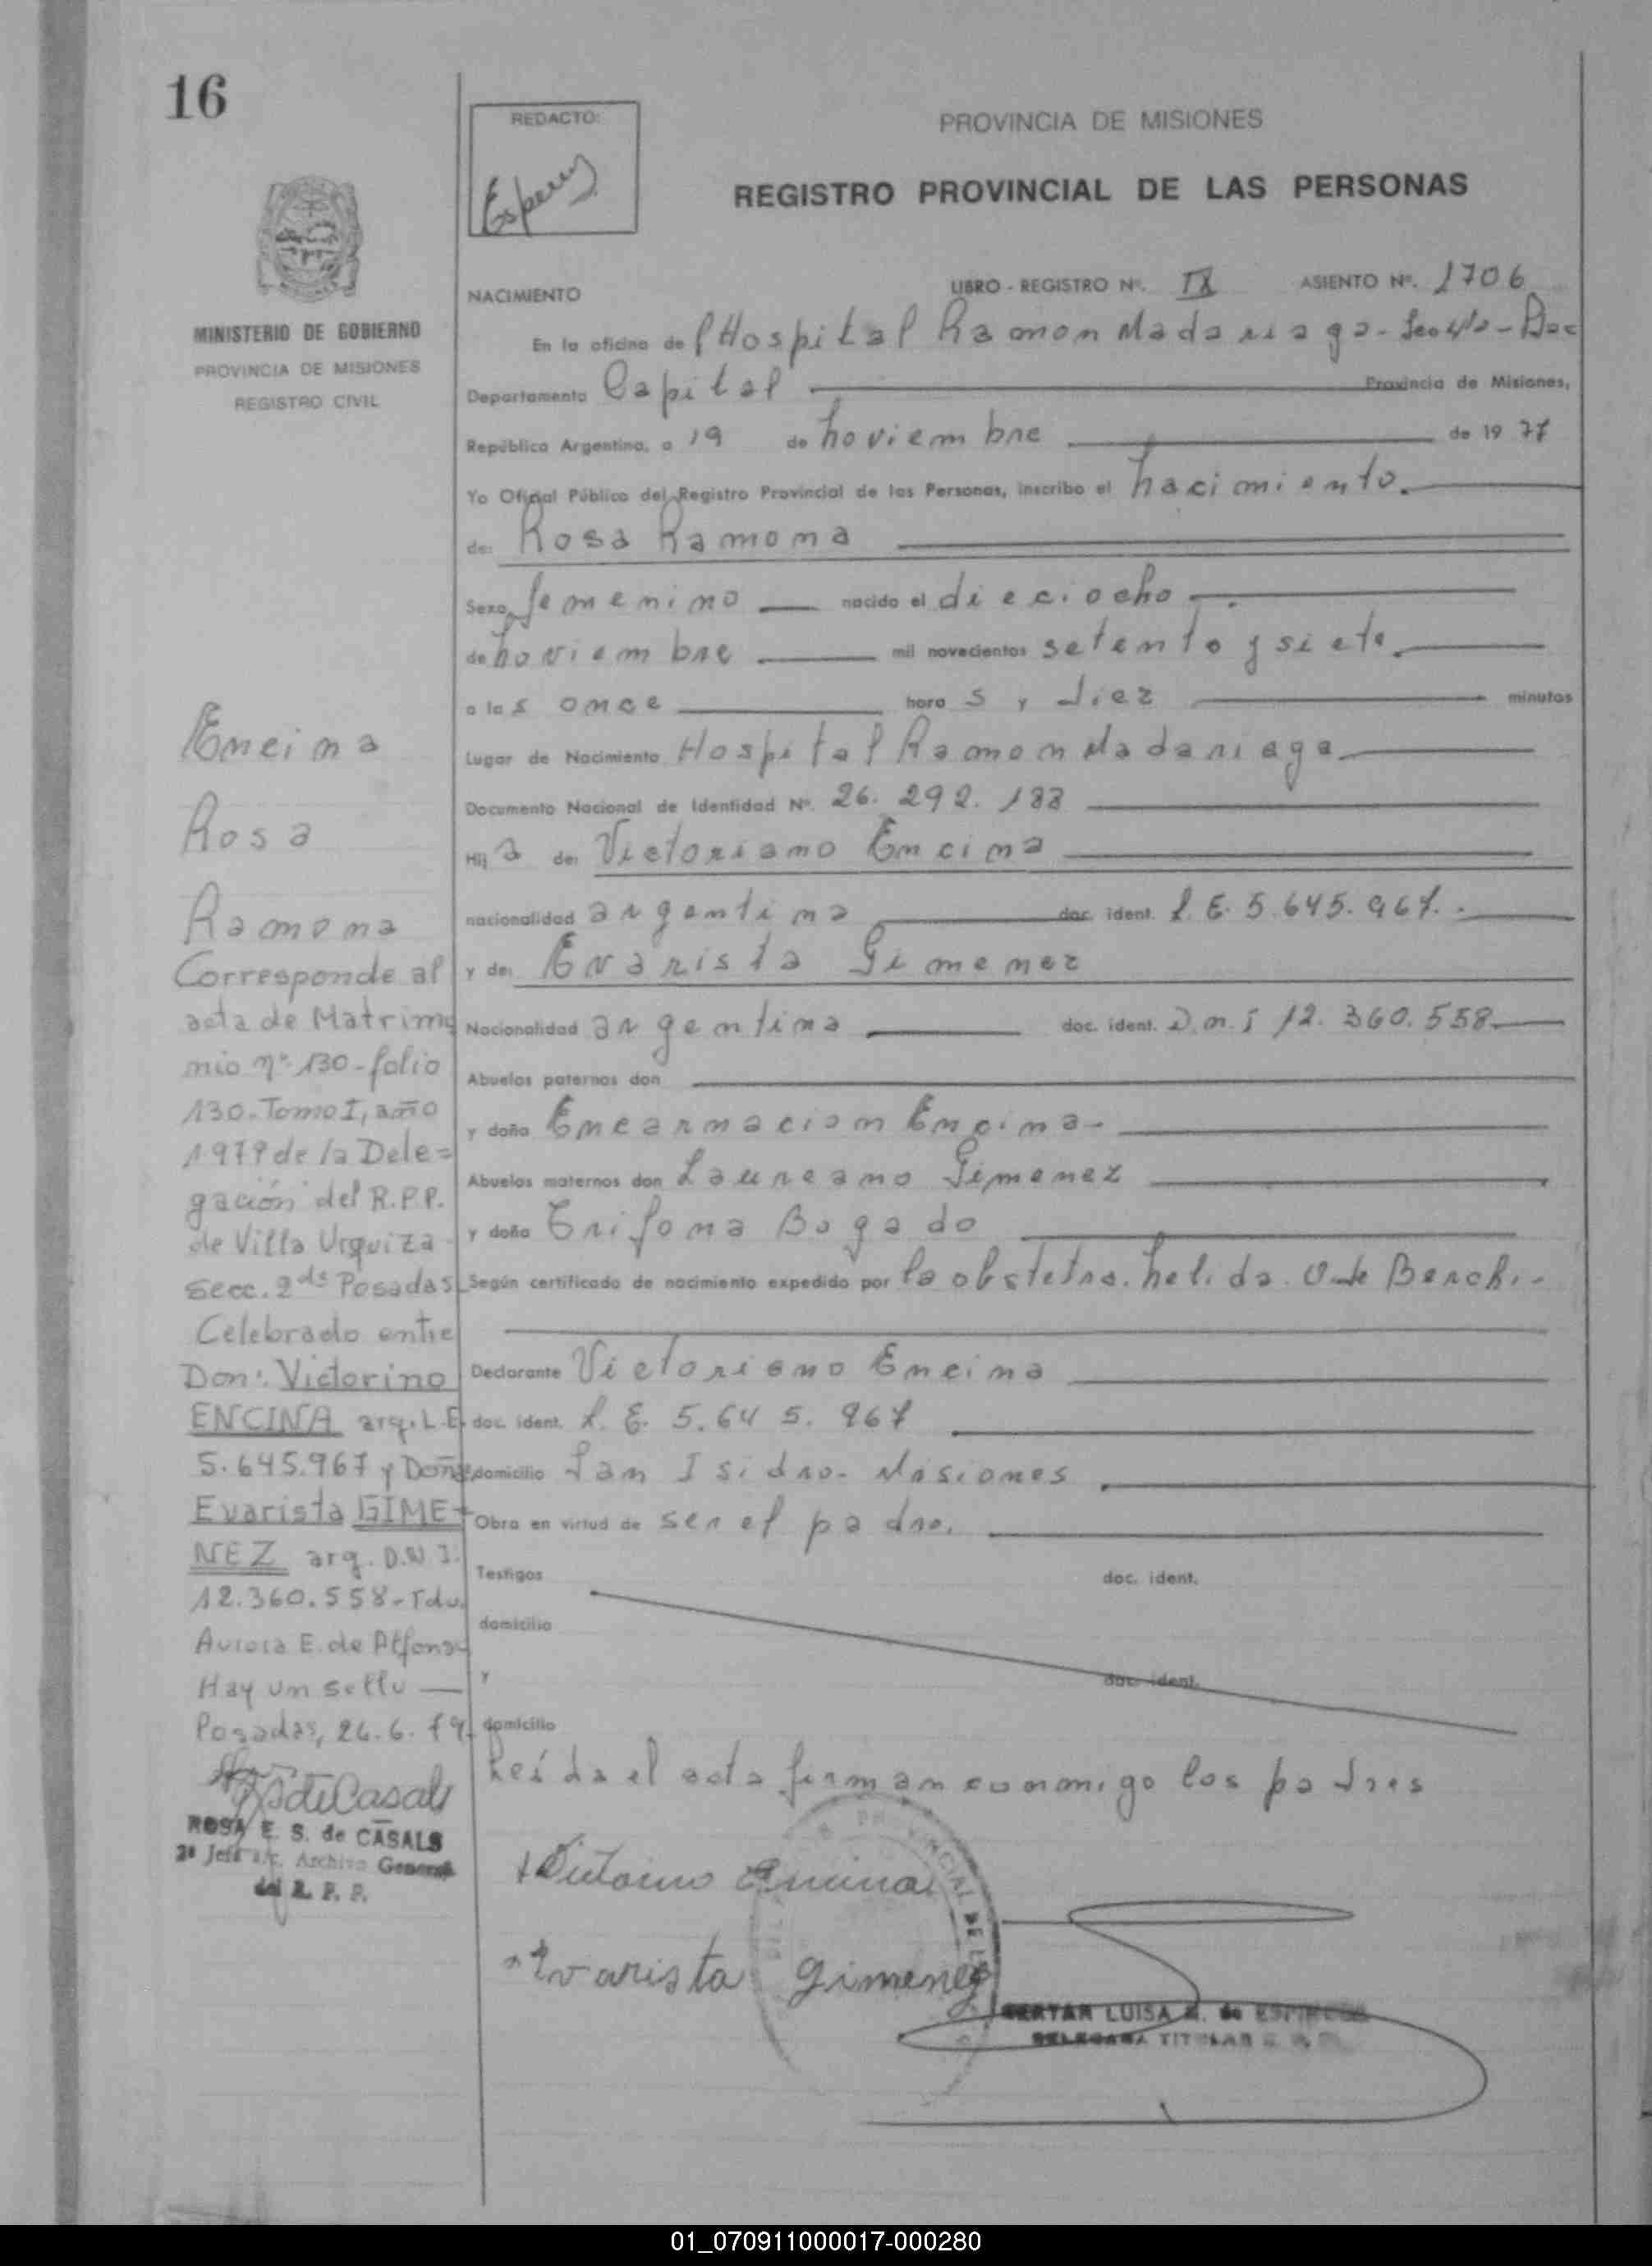 16
REDACTO:
PROVINCIA DE MISIONES
REGISTRO PROVINCIAL DE LAS PERSONAS
MINISTERIO DE GOBIERNO
PROVINCIA DE MISIONES
REGISTRO CIVIL
NACIMIENTO LIBRO - REGISTRO Nº. IX ASIENTO Nº. 1706
En la oficina del Hospital Ramon Madariaga -
Departamento Capital Provincia de Misiones,
República Argentina, a 19 de noviembre de 1977
Yo Oficial Público del Registro Provincial de las Personas, inscribo el nacimiento.
de: Rosa Ramona
Sexo femenino nacido el dieciocho
de noviembre mil novecientos setenta y siete.
a las once horas y diez minutos
Lugar de Nacimiento Hospital Ramon Madariaga
Documento Nacional de Identidad Nº. 26.292.188
Hija de: Victoriano Encina
nacionalidad argentina doc. ident. L.E. 5.645.967.
y de: Evarista Gimenez
Nacionalidad argentina doc. ident. D.n.i 12.360.558
Abuelos paternos don
y doña Encarnacion Encina-
Abuelos maternos don Laureano Gimenez
y doña Trifona Bogado
Según certificado de nacimiento expedido por la obstetra. Nelida
Declarante Victoriano Encina
doc. ident. L.E. 5.645.967
domicilio San Isidro - Misiones
Obra en virtud de ser el padre.
Testigos doc. ident.
domicilio
y doc. ident.
domicilio
Leída el acta firman conmigo los padres
Victorino Encina
Evarista Gimenez
LUISA de
TITULAR
Encina
Rosa
Ramona
Corresponde al
acta de Matrimo
nio nº 130 - folio
130. Tomo I, año
1979 de la Dele=
gación del R.P.P.
de Villa Urquiza
secc. 2da Posadas
Celebrado entre
Don: Victorino
ENCINA arg. L.E.
5.645.967 y Doña
Evarista GIME=
NEZ arg. D.N.I.
12.360.558 - Fdo.
Aurora E. de Alfonso
Hay un sello —
Posadas, 26.6.79.
ROSA E. S. de CASALS
2º Jefe a/c. Archivo General
del R. P. P.
01_070911000017-000280